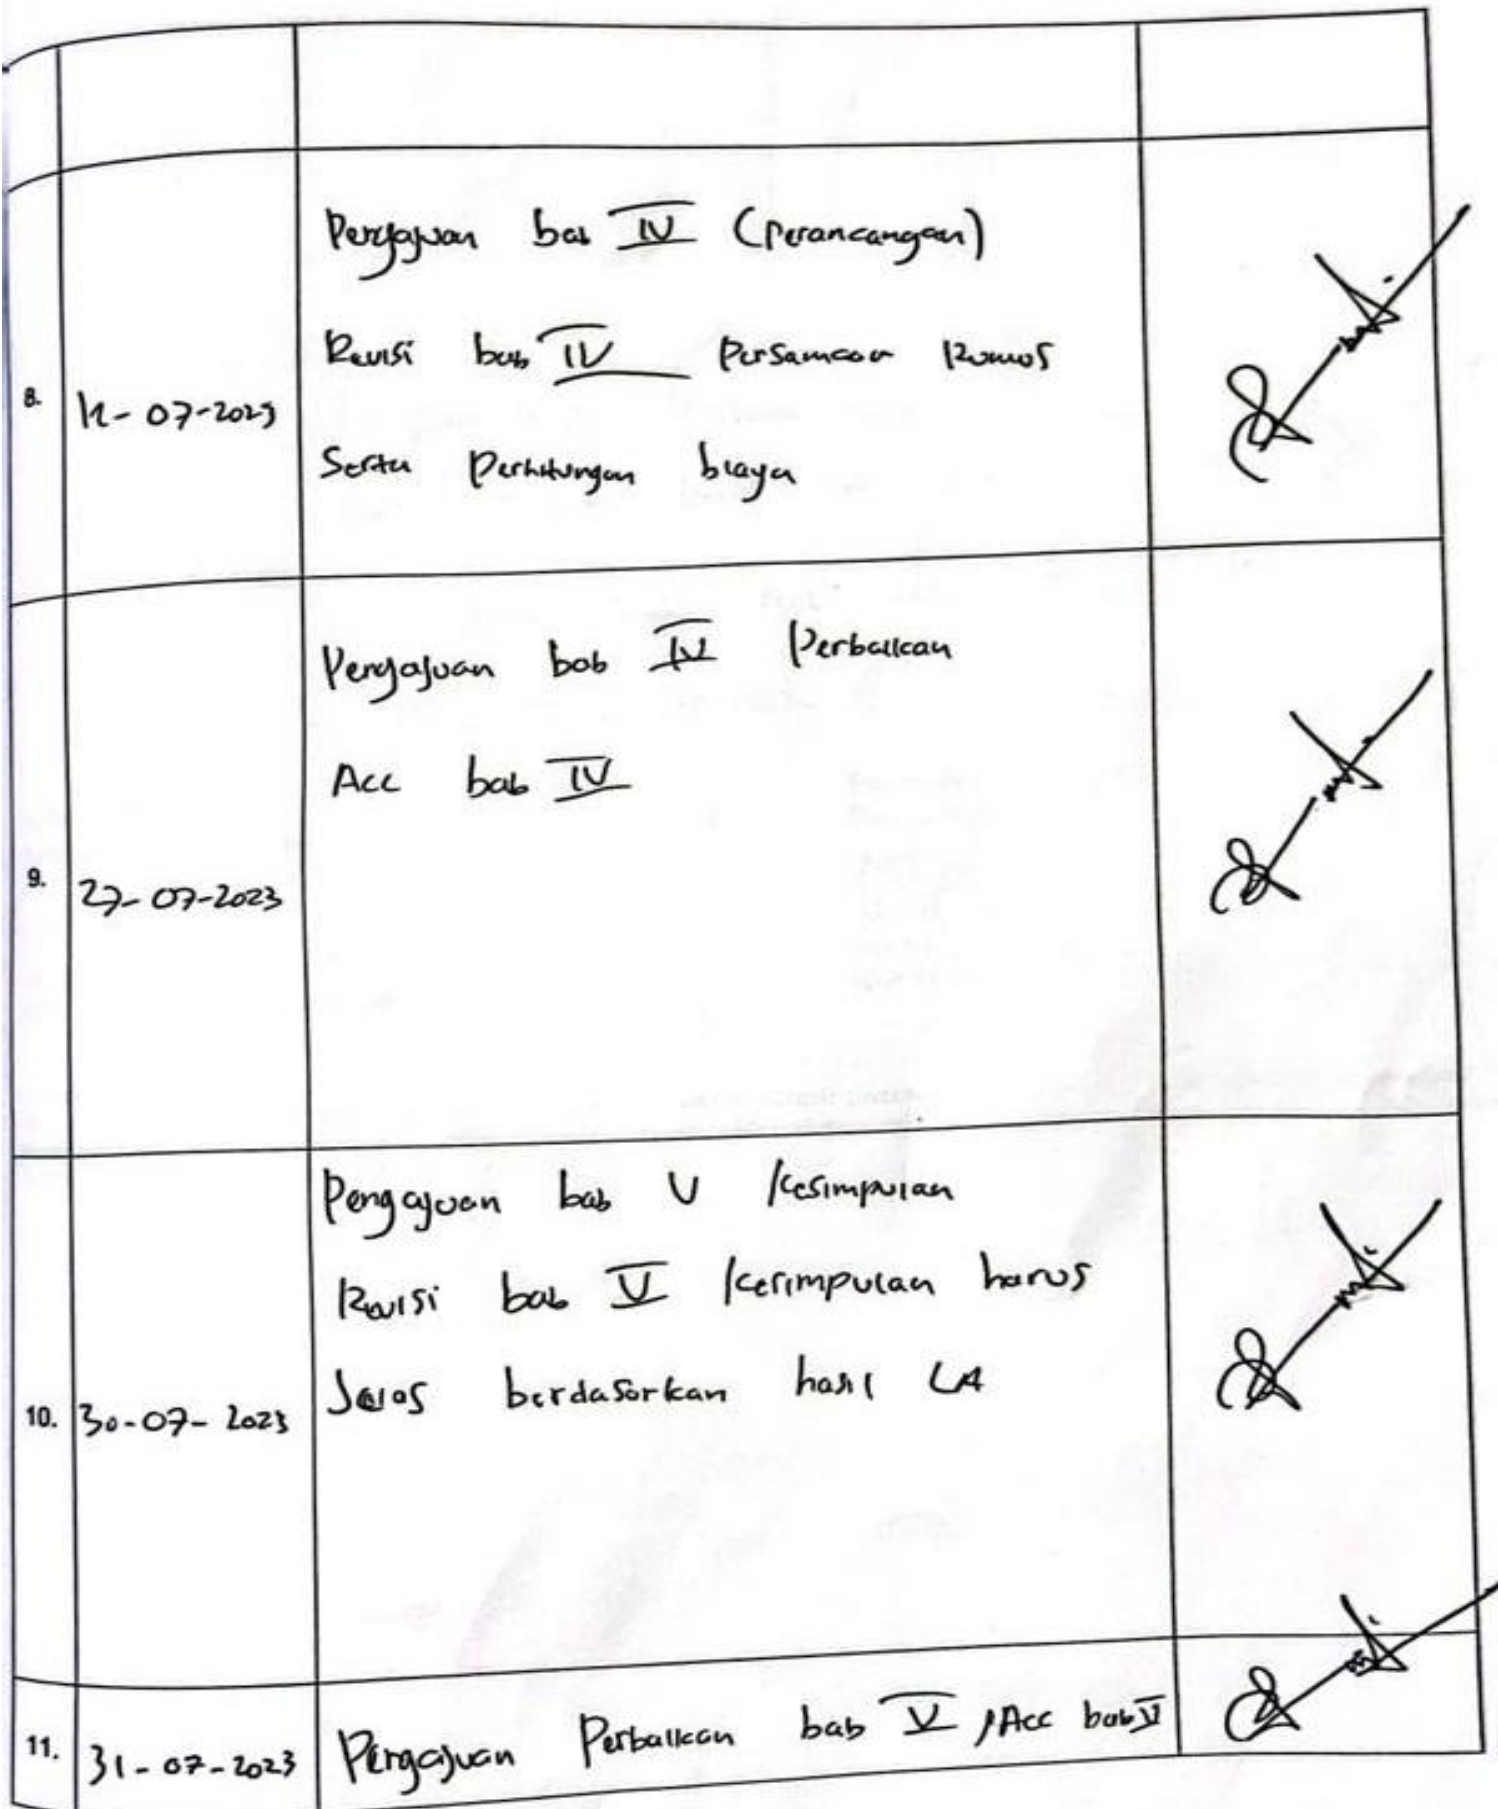 Pengajuan bab IV (Perancangan)
Revisi bab IV Persamaan Rumus
8.
12-07-2023
Serta Perhitungan biaya
Pengajuan bab IV Perbaikan
Acc bab IV
9.
27-07-2023
Pengajuan bab V Kesimpulan
Revisi bab V Kesimpulan harus
Jelas berdasarkan hasil LA
10.
30-07-2023
11.
31-07-2023
Pengajuan Perbaikan bab V, Acc bab V